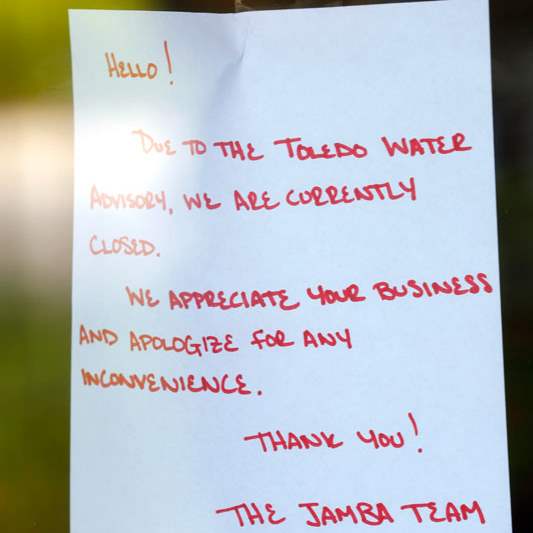 HELLO!
DUE TO THE TOLEDO WATER
ADVISORY, WE ARE CURRENTLY
CLOSED.
WE APPRECIATE YOUR BUSINESS
AND APOLOGIZE FOR ANY
INCONVENIENCE.
THANK YOU!
THE JAMBA TEAM